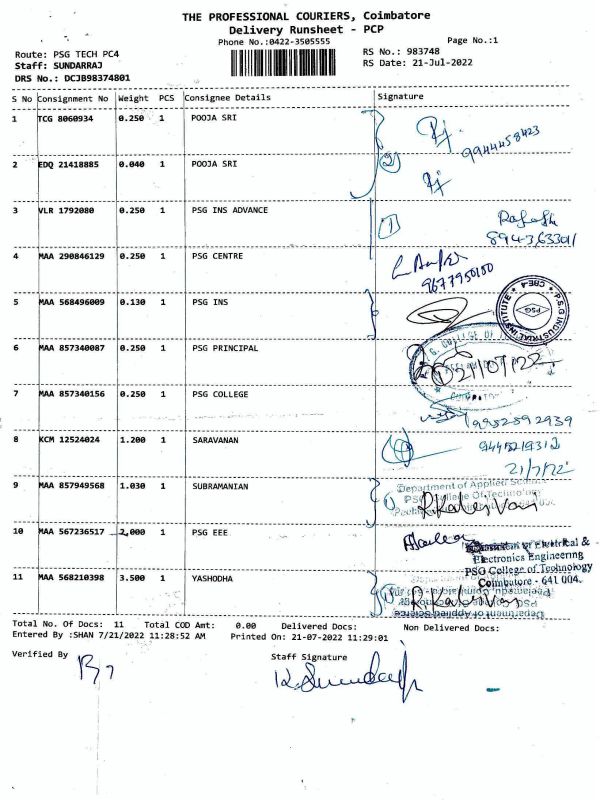 THE PROFESSIONAL COURIERS, Coimbatore
Delivery Runsheet - PCP
Phone No.:0422-3505555 Page No.:1
Route: PSG TECH PC4 RS No.: 983748
Staff: SUNDARRAJ RS Date: 21-Jul-2022
DRS No.: DCJB98374801
S No Consignment No Weight PCS Consignee Details Signature
1 TCG 8060934 0.250 1 POOJA SRI
9944458423
2 EDQ 21418885 0.040 1 POOJA SRI
2
3 VLR 1792080 0.250 1 PSG INS ADVANCE
1
4 MAA 290846129 0.250 1 PSG CENTRE
9677950100
5 MAA 568496009 0.130 1 PSG INS
P.S.G INDUSTRIAL INSTITUTE
PSG
6 MAA 857340087 0.250 1 PSG PRINCIPAL
21/07/22
7 MAA 857340156 0.250 1 PSG COLLEGE
8 KCM 12524024 1.200 1 SARAVANAN
21/7/22
9 MAA 857949568 1.030 1 SUBRAMANIAN
Department of Applied Science
PSG College Of Technology
10 MAA 567236517 2.000 1 PSG EEE
Electrical &
Electronics Engineering
PSG College of Technology
Coimbatore - 641 004.
11 MAA 568210398 3.500 1 YASHODHA
Total No. Of Docs: 11 Total COD Amt: 0.00 Delivered Docs: Non Delivered Docs:
Entered By :SHAN 7/21/2022 11:28:52 AM Printed On: 21-07-2022 11:29:01
Verified By Staff Signature